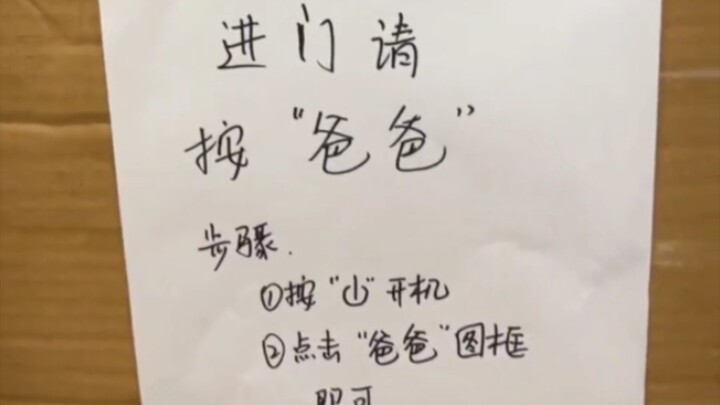 进门请
按“爸爸”
步骤.
①按“⏻”开机
②点击“爸爸”图框
即可